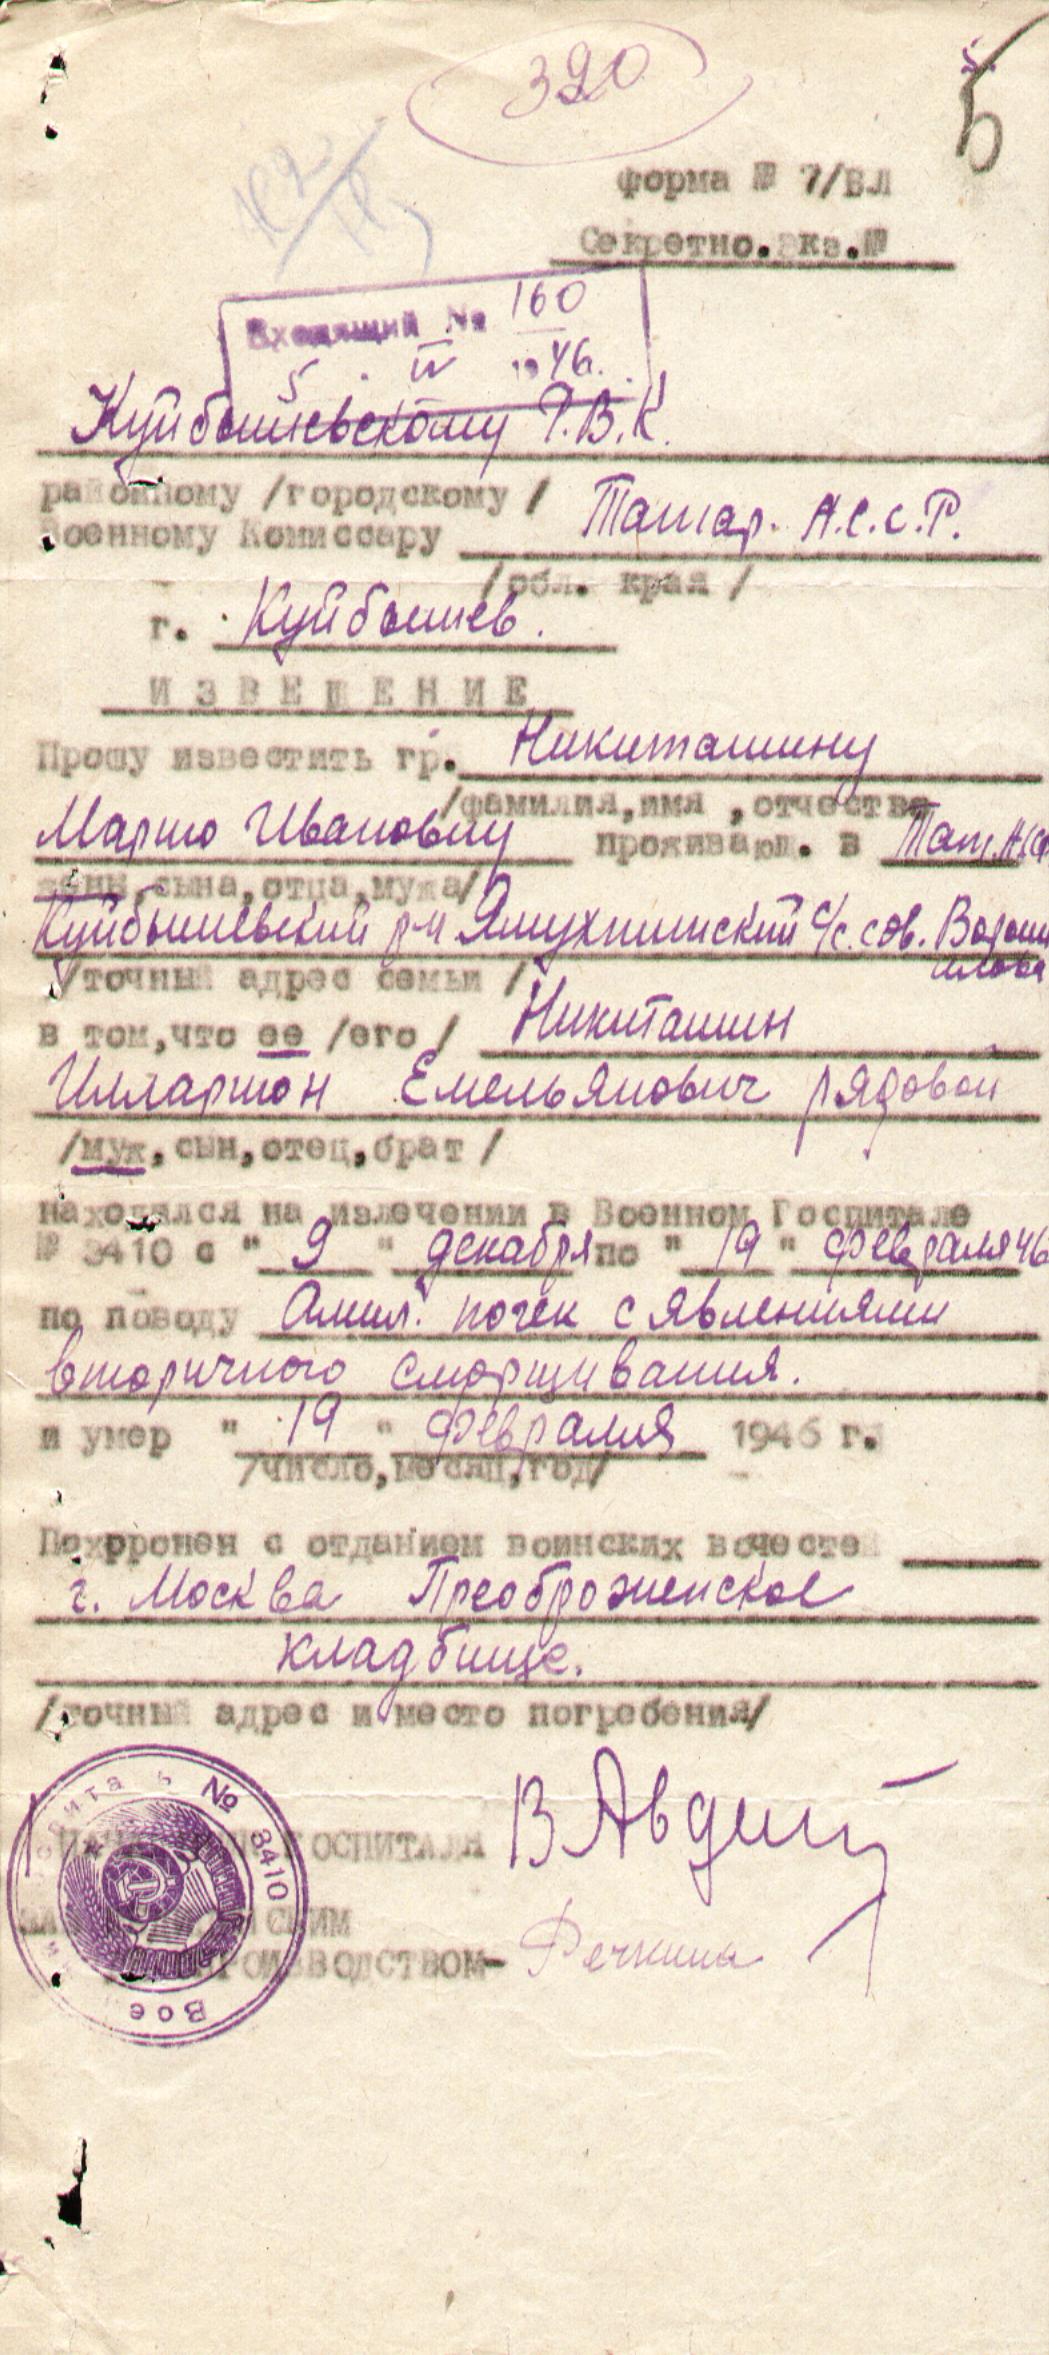 320
5
форма № 7/ВЛ
Секретно. экз.№
Входящий № 160
5. IV 1946.
Куйбышевскому Р.В.К.
районному /городскому /
Военному Комиссару Татар. А.С.С.Р.
/обл. края /
г. Куйбышев.
ИЗВЕЩЕНИЕ
Прошу известить гр. Никиташину
/фамилия,имя ,отчество
Марию Ивановну проживающ. в Тат.АСС
жены,сына,отца,мужа/
Куйбышевский р-н Ямухтинский с/с. сов. Вороши
лова
/точный адрес семьи /
в том,что ее /его / Никиташин
Илларион Емельянович рядовой
/муж,сын,отец,брат /
находялся на излечении в Военном Госпитале
№ 3410 с " 9 " декабря по " 19 " февраля 46
по поводу Амил. почек с явлениями
вторичного сморщивания.
и умер " 19 " февраля 1946 г.
/число,месяц,год/
Похрронен с отданием воинских вочестей
г. Москва Преображенское
кладбище.
/точный адрес и место погребения/
ГОСПИТАЛЯ В Авдей
СКИМ
ПРОИЗВОДСТВОМ- Фечкина
№ 3410